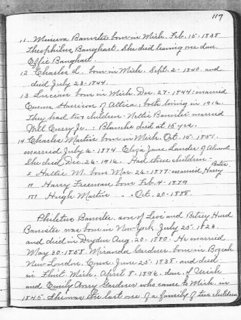 117
11. Minerva Banister born in Mich. Feb. 15 - 1838
Theophilus Banghart. She died leaving one dau.
Effie Banghart
12. Charles H. born in Mich. Sept. 2 - 1840. and
died July 23 - 1844.
13. Lucien born in Mich. Dec. 27 - 1844. married
Emma Harrison of Attica; both living in 1916.
They had two children: Nettie Banister married
Mel Curry Jr.: Blanche died at 15 yrs.
14. Charles Martin born in Mich. Oct. 15 - 1851.
married July 2 - 1874. Eliza Jane Lander of Almont
She died Dec. 26 - 1916. Had three children:
I Hattie M. born Mar. 26 - 1877. married Harry
II Harry Freeman born Feb. 4 - 1879
III Hugh Martin " . Oct. 20 - 1888.
Philetus Banister, son of Levi and Betsey Hurd
Banister was born in New York July 25 - 1823.
and died in Dryden Aug. 20 - 1880. He married
May 30 - 1858 Miranda Gardner, born in Bozrah
New London, Conn. June 25 - 1838. and died
in Flint, Mich. April 8 - 1896. dau. of Uriah
and Emily Avery Gardner who came to Mich. in
1840. She was the last one of a family of ten children